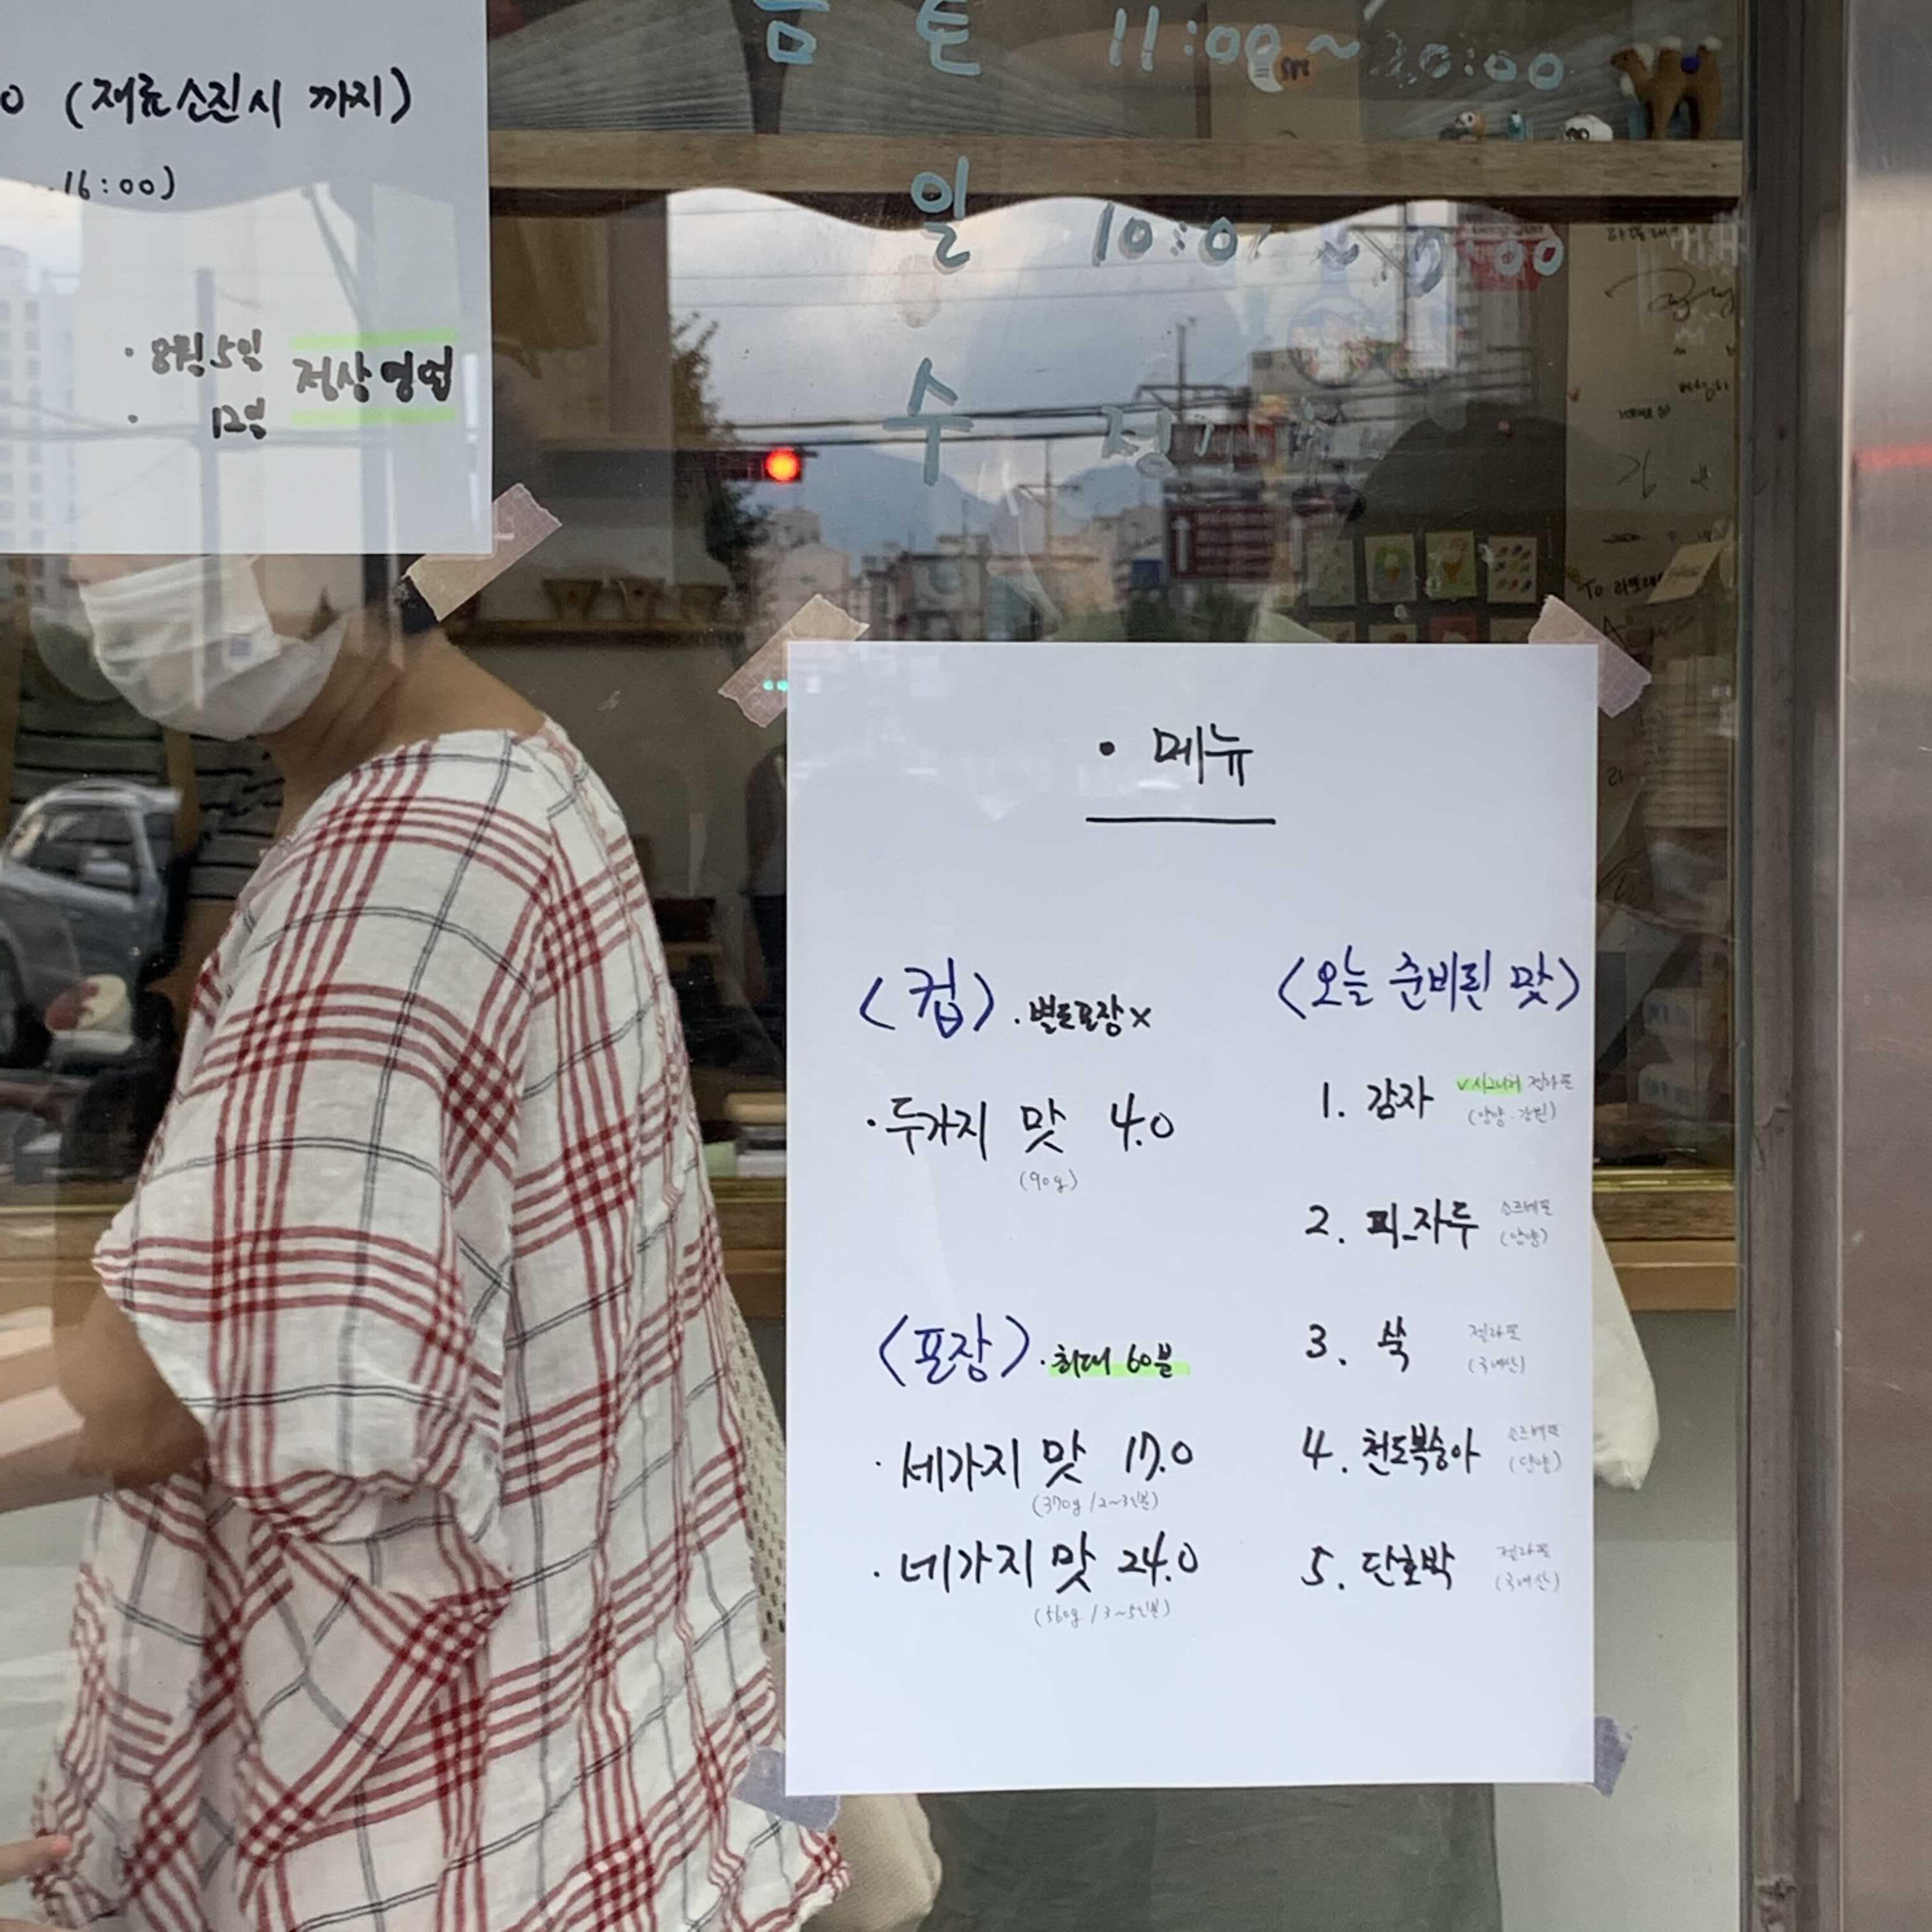 (재료소진시 까지)
16:00)
• 8월 5일 정상영업
• 12일
금 토 11:00~20:00
일 10:0
수
• 메뉴
<컵> · 별도포장 x
· 두가지 맛 4.0
(90g)
<포장> · 최대 60분
· 세가지 맛 17.0
(370g / 2~3인분)
· 네가지 맛 24.0
(560g / 3~5인분)
<오늘 준비된 맛>
1. 감자 ✓시그니처 젤라또
2. 피_자두 소르베또
3. 쑥 젤라또
(국내산)
4. 천도복숭아 소르베또
5. 단호박 젤라또
(국내산)
To